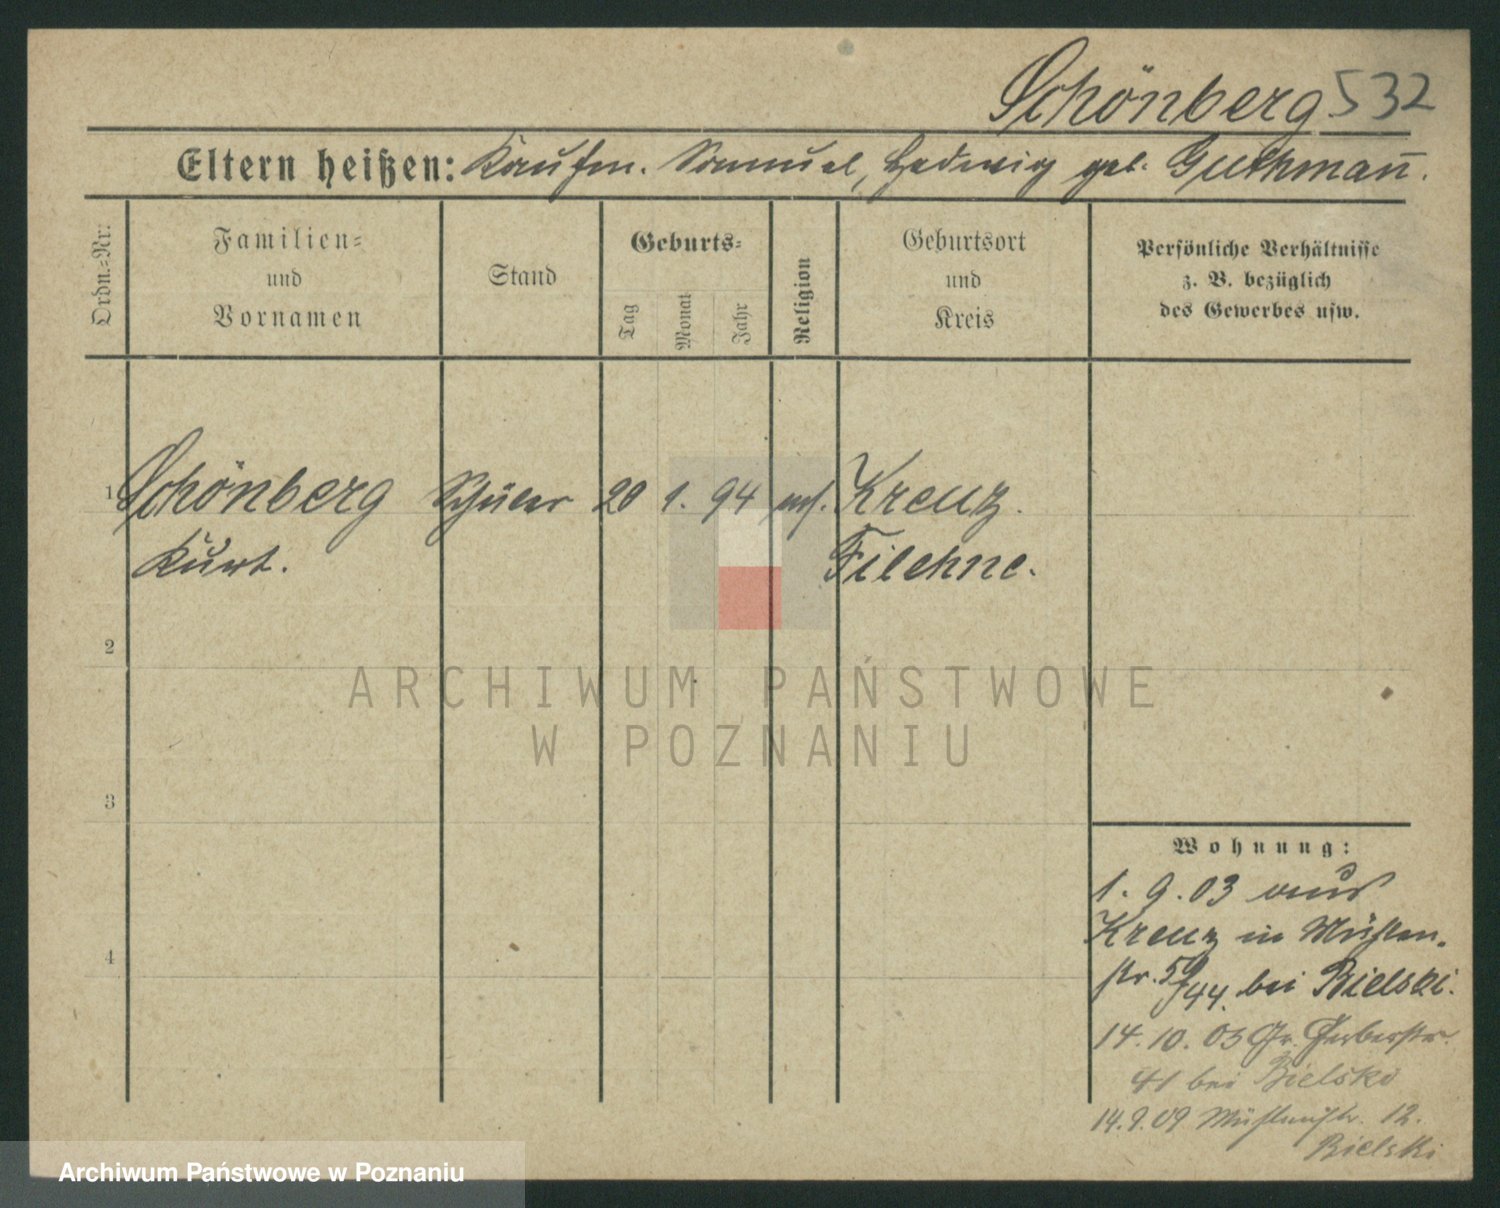 Schönberg 532
Eltern heißen: Kaufm. Samuel, Hedwig geb. Guthmann̄.
Ordn.-Nr:
Familien-
und
Vornamen
Stand
Geburts-
Tag
Monat
Jahr
Religion
Geburtsort
und
Kreis
Persönliche Verhältnisse
z. B. bezüglich
des Gewerbes usw.
1 Schönberg Schüler 20 1. 94 mos. Kreuz.
Kurt. Filehne.
2
3
4
Wohnung:
1. 9. 03 aus
Kreuz in Mühlen-
str. 59/44. bei Bielski.
14. 10. 05 Gr. Gerberstr.
41 bei Bielski
14. 9. 09 Mühlenstr. 12.
Bielski
ARCHIWUM PAŃSTWOWE
W POZNANIU
Archiwum Państwowe w Poznaniu